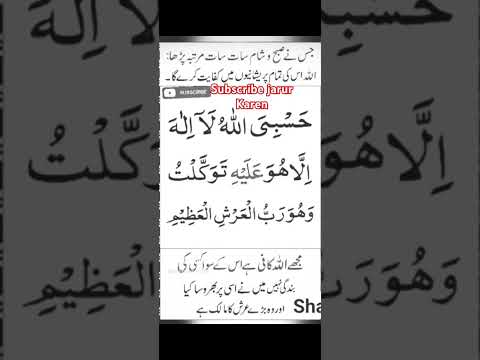 جس نے صبح و شام سات سات مرتبہ پڑھا:
اللہ اس کی تمام پریشانیوں میں کفایت کرے گا۔
SUBSCRIBE
Subscribe jarur
Karen
حَسْبِیَ اللّٰهُ لَآ اِلٰهَ
اِلَّا هُوَ عَلَيْهِ تَوَكَّلْتُ
وَهُوَ رَبُّ الْعَرْشِ الْعَظِيْمِ
مجھے اللہ کافی ہے اس کے سوا کسی کی
بندگی نہیں میں نے اسی پر بھروسا کیا
اور وہ بڑے عرش کا مالک ہے
Sha